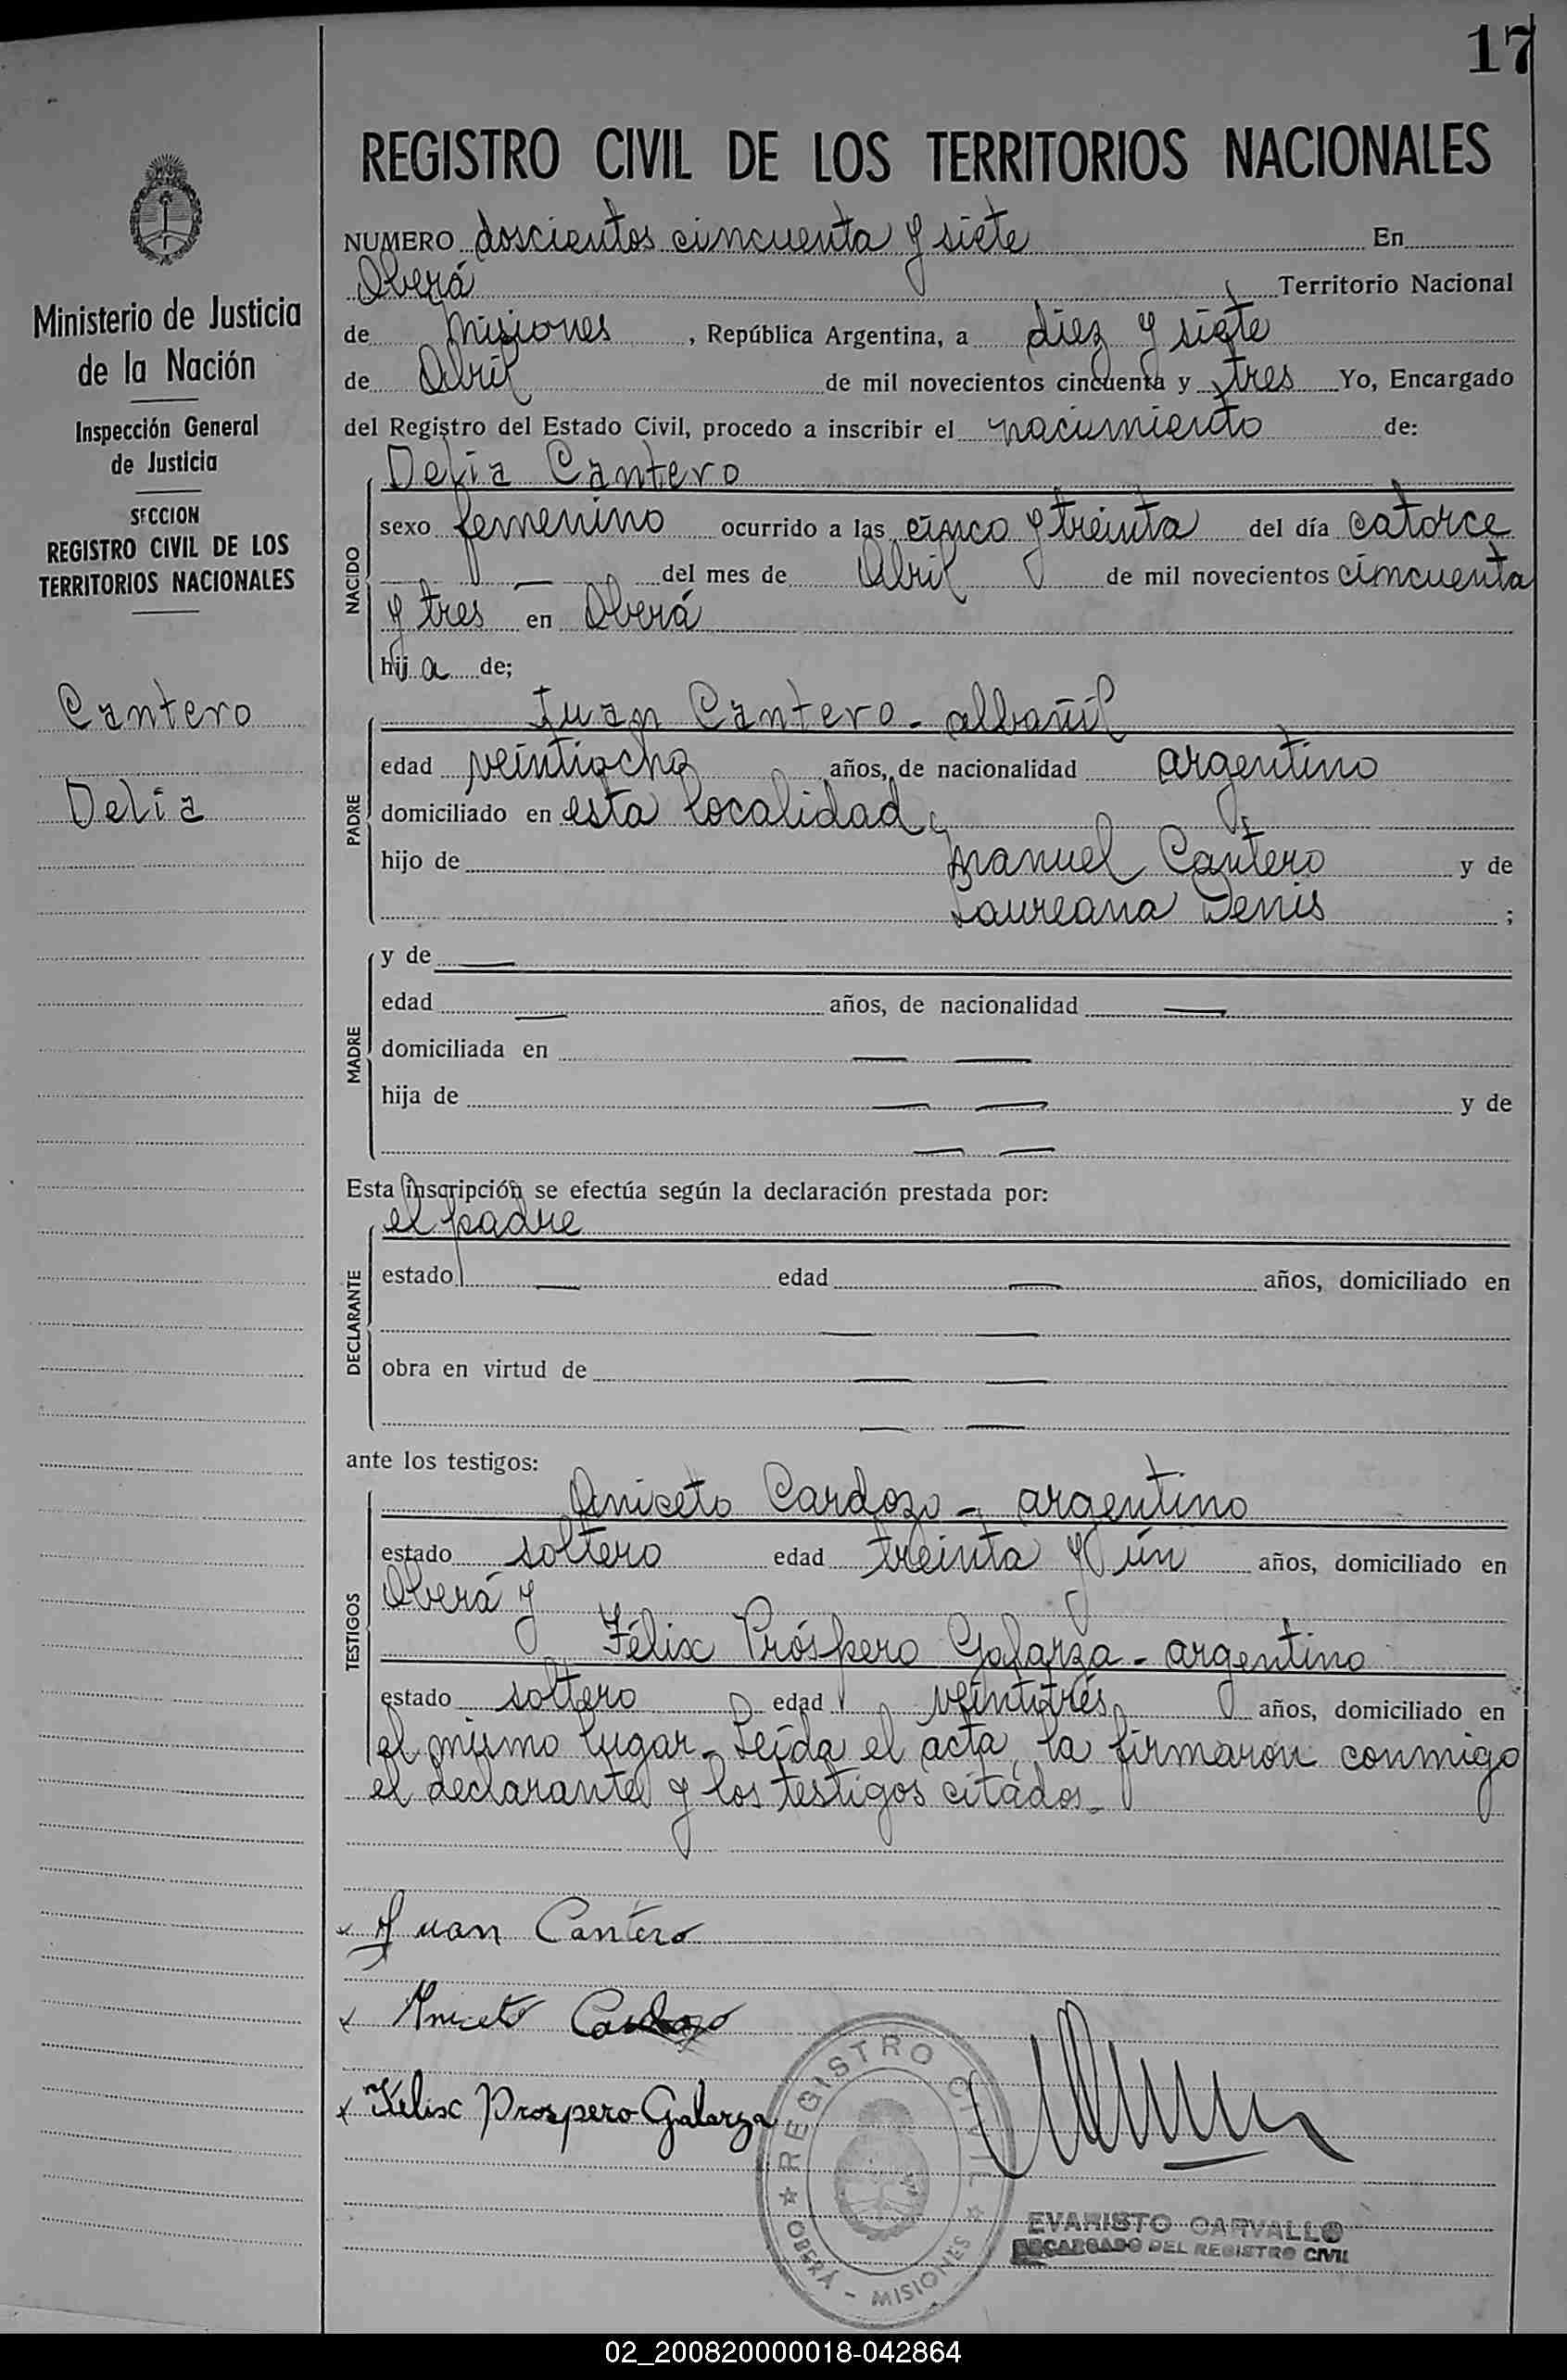 17
REGISTRO CIVIL DE LOS TERRITORIOS NACIONALES
Ministerio de Justicia
de la Nación
Inspección General
de Justicia
SECCION
REGISTRO CIVIL DE LOS
TERRITORIOS NACIONALES
Cantero
Delia
NUMERO doscientos cincuenta y siete En
Oberá Territorio Nacional
de Misiones, República Argentina, a diez y siete
de Abril de mil novecientos cincuenta y tres Yo, Encargado
del Registro del Estado Civil, procedo a inscribir el nacimiento de:
NACIDO
Delia Cantero
sexo femenino ocurrido a las cinco y treinta del día catorce
— — del mes de Abril de mil novecientos cincuenta
y tres en Oberá
hija de;
PADRE
Juan Cantero - albañil
edad veintiocho años, de nacionalidad argentino
domiciliado en esta localidad,
hijo de Manuel Cantero y de
Laureana Denis ;
MADRE
y de —
edad — años, de nacionalidad —
domiciliada en — —
hija de — — y de
— —
Esta inscripción se efectúa según la declaración prestada por:
DECLARANTE
el padre
estado — edad — años, domiciliado en
— —
obra en virtud de — —
— —
ante los testigos:
TESTIGOS
Aniceto Cardozo - argentino
estado soltero edad treinta y ún años, domiciliado en
Oberá y
Félix Próspero Galarza - argentino
estado soltero edad veintitrés años, domiciliado en
el mismo lugar - Leída el acta, la firmaron conmigo
el declarante y los testigos citados -
x Juan Cantero
x Aniceto Cardozo
x Felix Prospero Galarza
REGISTRO CIVIL
OBERÁ - MISIONES
EVARISTO CARVALLO
ENCARGADO DEL REGISTRO CIVIL
02_200820000018-042864